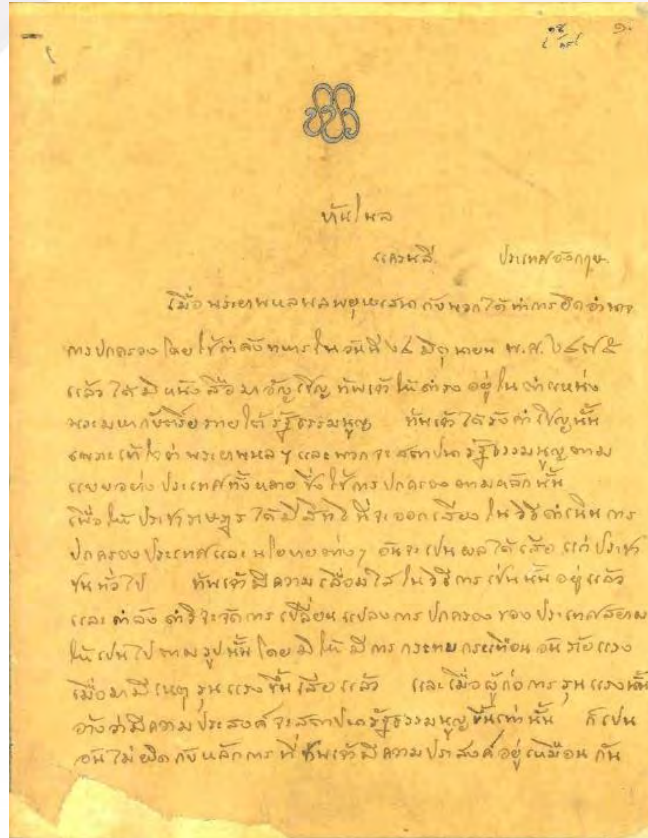 ๑
บ้านโนล
แครนลี ประเทศอังกฤษ
เมื่อพระยาพหลพลพยุหเสนากับพวกได้ทำการยึดอำนาจ
การปกครองโดยใช้กำลังทหารในวันที่ ๒๔ มิถุนายน พ.ศ. ๒๔๗๕
แล้ว ได้มีหนังสือมาอัญเชิญข้าพเจ้าให้ดำรงอยู่ในตำแหน่ง
พระมหากษัตริย์ภายใต้รัฐธรรมนูญ ข้าพเจ้าได้รับคำเชิญนั้น
เพราะเข้าใจว่าพระยาพหลฯ และพวกจะสถาปนารัฐธรรมนูญตาม
แบบอย่างประเทศทั้งหลายซึ่งใช้การปกครองตามหลักนั้น
เพื่อให้ประชาราษฎรได้มีสิทธิที่จะออกเสียงในวิธีดำเนินการ
ปกครองประเทศและนโยบายต่างๆ อันจะเป็นผลได้เสียแก่ประชา
ชนทั่วไป ข้าพเจ้ามีความเลื่อมใสในวิธีการเช่นนั้นอยู่แล้ว
และกำลังดำริจะจัดการเปลี่ยนแปลงการปกครองของประเทศสยาม
ให้เป็นไปตามรูปนั้น โดยมิให้มีการกระทบกระเทือนอันร้ายแรง
เมื่อมามีเหตุรุนแรงขึ้นเสียแล้ว และเมื่อผู้ก่อการรุนแรงนั้น
อ้างว่ามีความประสงค์จะสถาปนารัฐธรรมนูญขึ้นเท่านั้น ก็เป็น
อันไม่ผิดกับหลักการที่ข้าพเจ้ามีความประสงค์อยู่เหมือนกัน